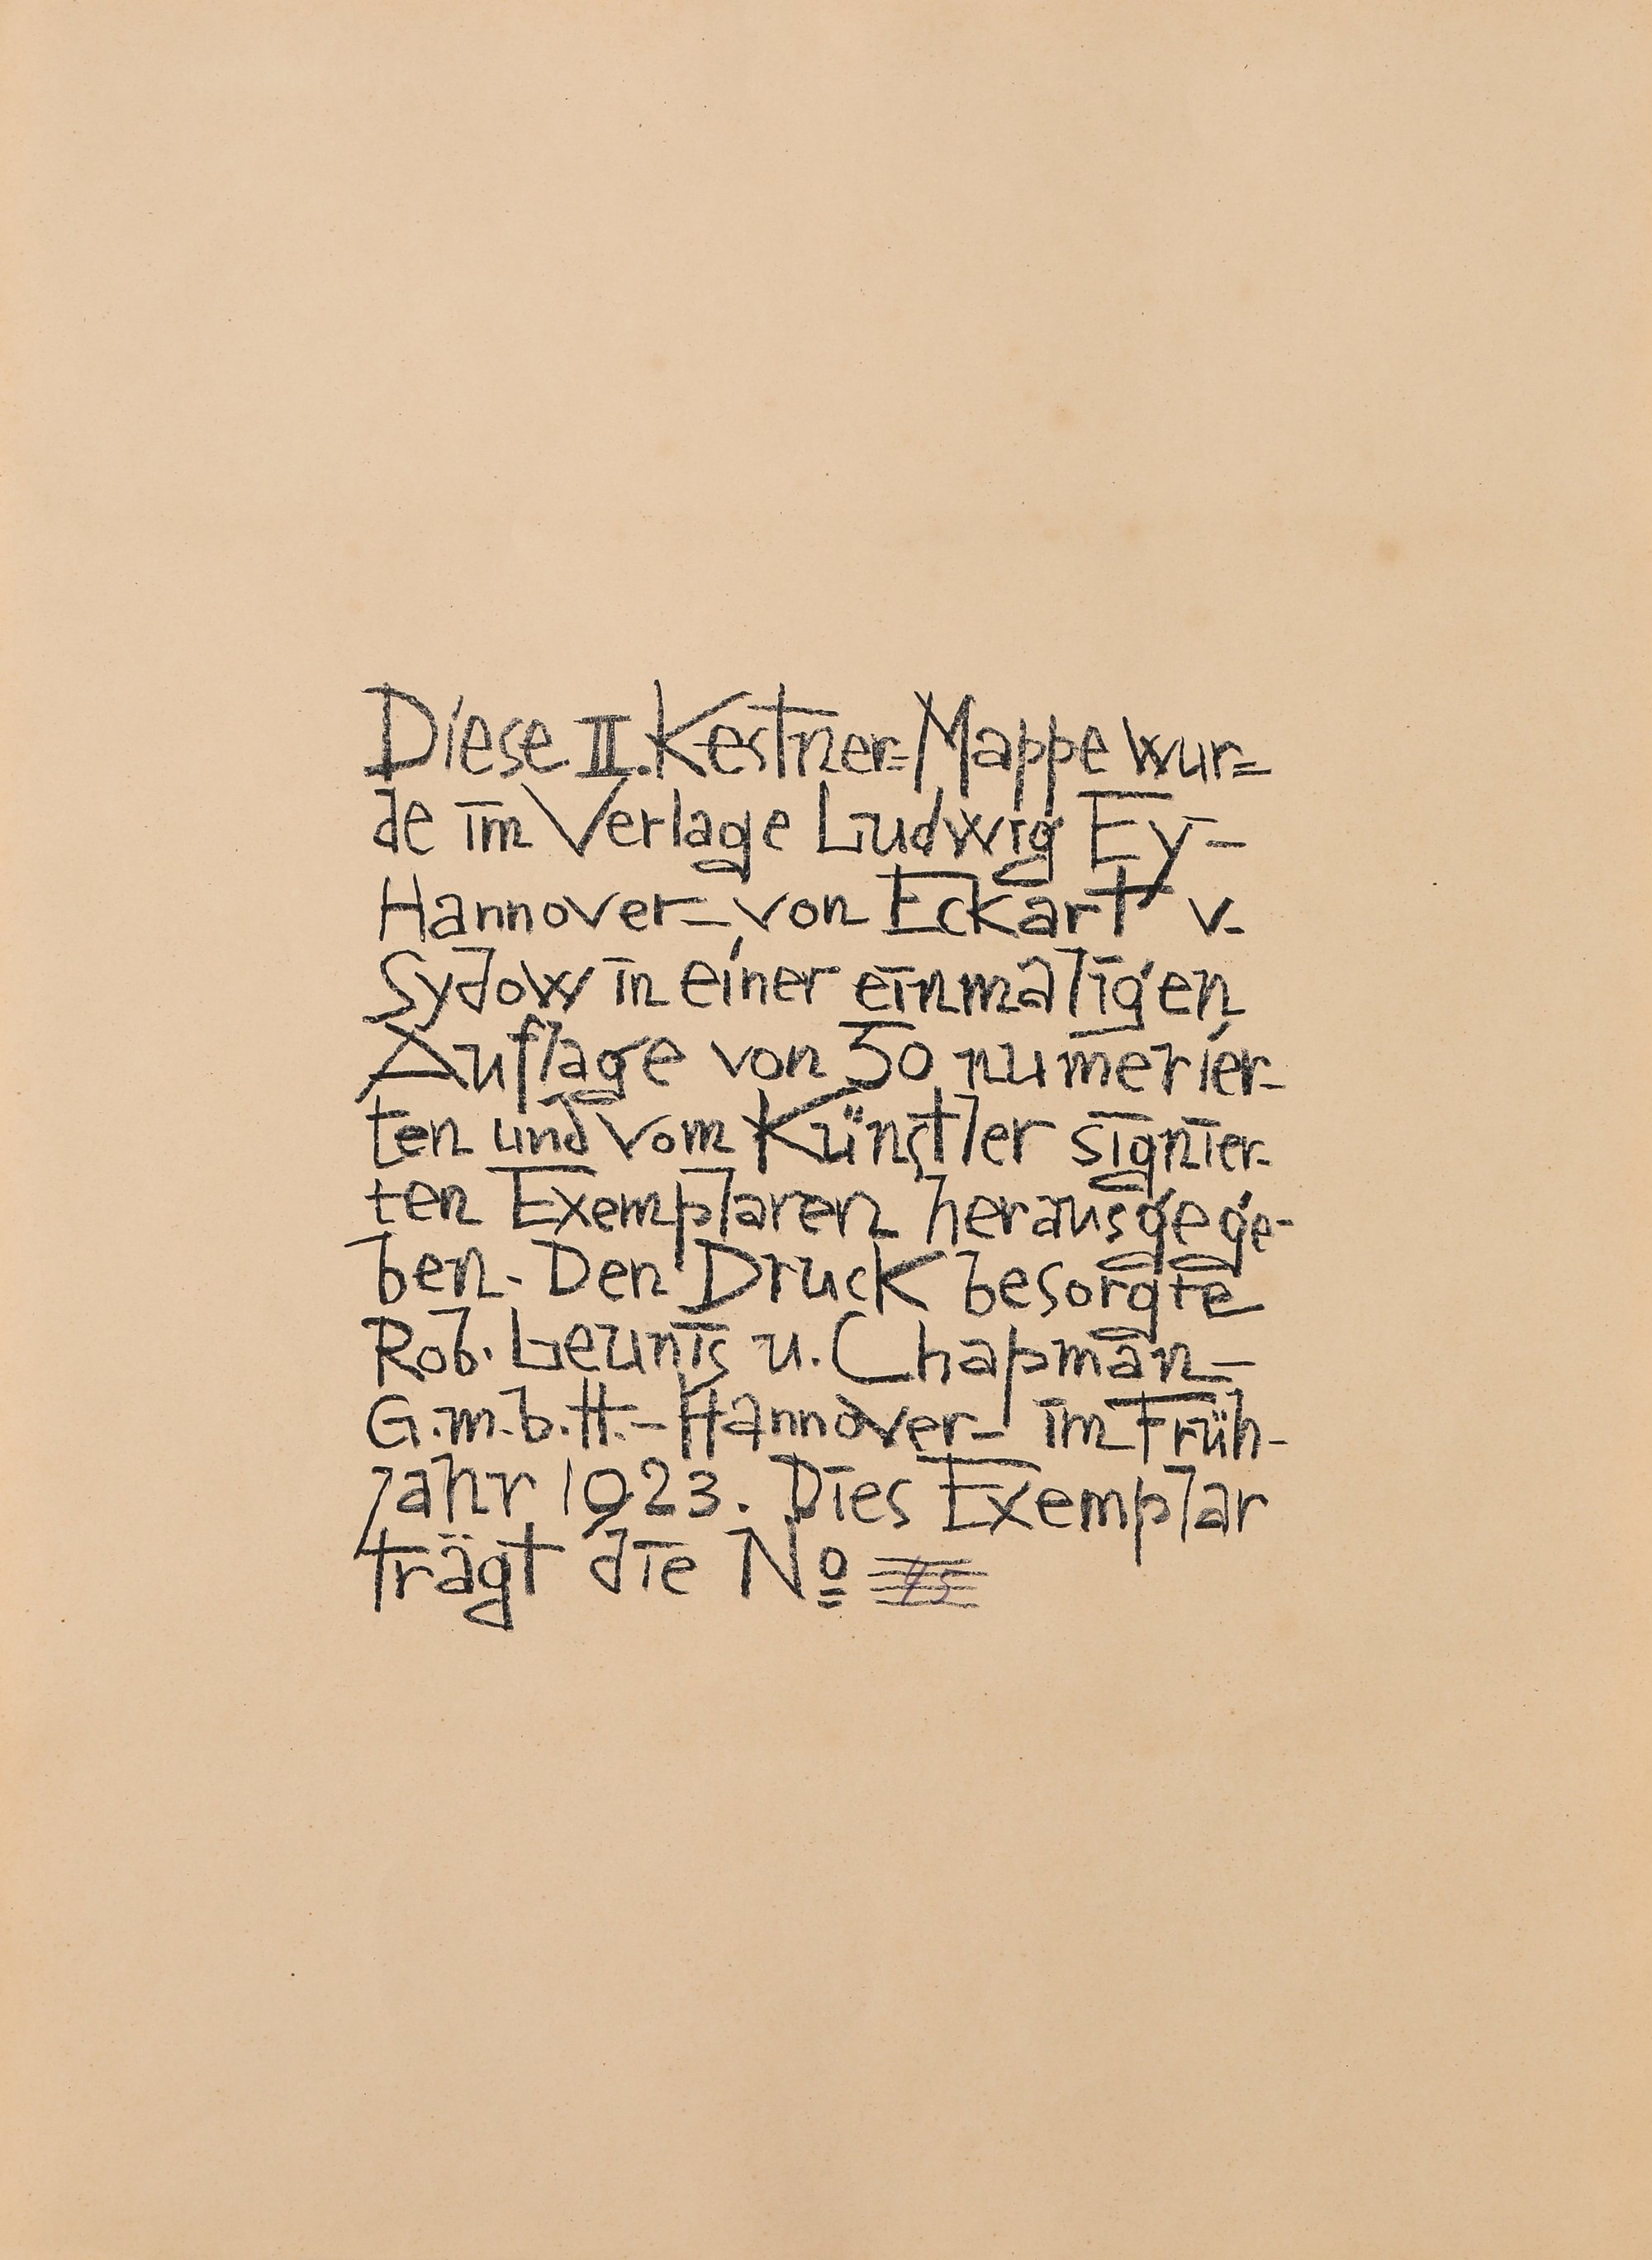 Diese II. Kestner=Mappe wur=
de im Verlage Ludwig Ey-
Hannover-, von Eckart v.
Sydow in einer einmaligen
Auflage von 50 numerier-
ten und vom Künstler signier-
ten Exemplaren herausgege-
ben. Den Druck besorgte
Rob. Leunis u. Chapman-
G.m.b.H.-Hannover- im Früh-
jahr 1923. Dies Exemplar
trägt die No